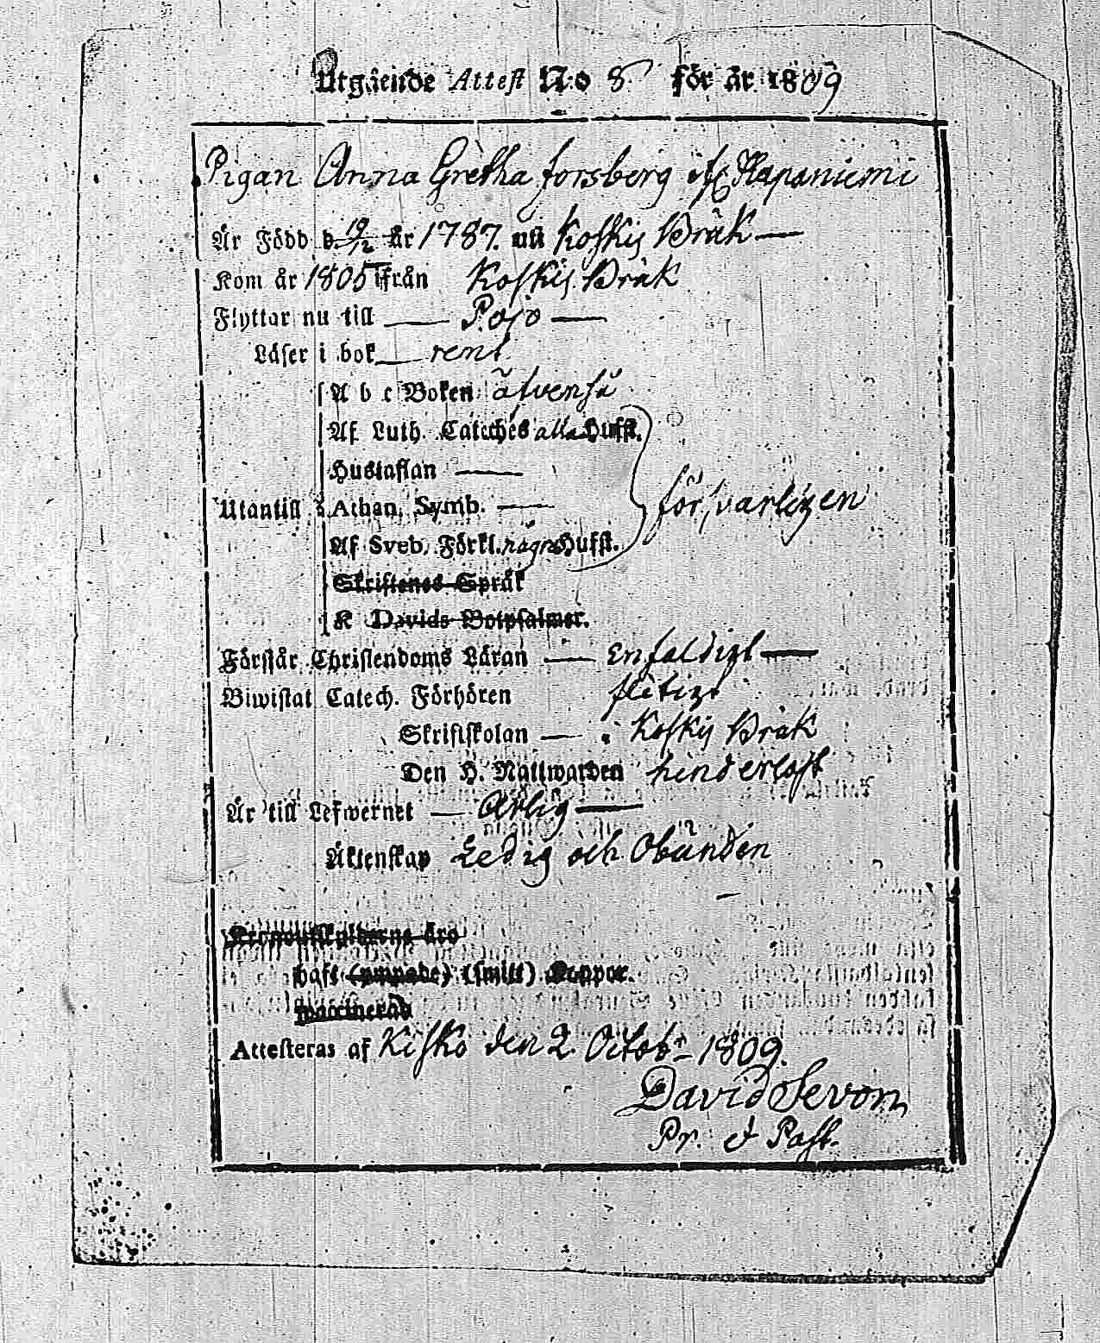 Utgående Attest N:o 8. för år 1809
Pigan Anna Gretha forsberg ifr Hapaniemi
Är Född d. 19/2 år 1787. uti Koskis Bråk —
Kom år 1805 ifrån Koskis Bråk
Flyttar nu till — Pojo —
Läser i bok — rent
A b c Boken äfvenså
Af Luth. Catechés alla Hufst.
Hustaflan —
Utantill Athan. Symb. — försvarligen
Af Sveb. Förkl. några Hufst.
Skriftenes Språk
K Davids Botpsalmer.
Förstår Christendoms Läran — Enfaldigt —
Biwistat Catech. Förhören flitigt
Skriftskolan — i Koskis Bråk
Den H. Nattwarden hinderlöst
Är till Lefwernet — Ärlig —
Äktenskap Ledig och Obunden
Kronoutskylderne äro
haft (ympade) (smitt) Koppor.
vaccinerad
Attesteras af Kisko den 2. Octobr 1809.
David Sevon
Pr. et Past.